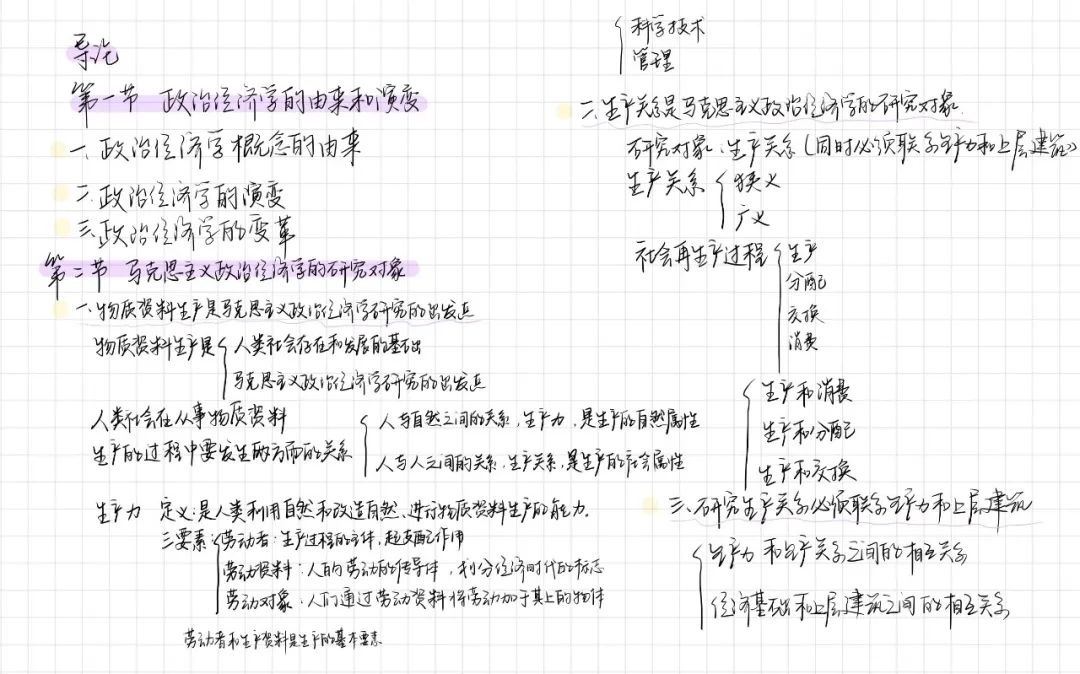 导论
第一节 政治经济学的由来和演变
一、政治经济学概念的由来
二、政治经济学的演变
三、政治经济学的变革
第二节 马克思主义政治经济学的研究对象
一、物质资料生产是马克思主义政治经济学研究的出发点
物质资料生产是 { 人类社会存在和发展的基础
马克思主义政治经济学研究的出发点
人类社会在从事物质资料
生产的过程中要发生两方面的关系
{ 人与自然之间的关系,生产力,是生产的自然属性
人与人之间的关系,生产关系,是生产的社会属性
生产力 定义:是人类利用自然和改造自然、进行物质资料生产的能力.
三要素 { 劳动者:生产过程的主体,起支配作用
劳动资料:人的劳动的传导体,划分经济时代的标志
劳动对象:人们通过劳动资料将劳动加于其上的物体
劳动者和生产资料是生产的基本要素
{ 科学技术
管理
二、生产关系是马克思主义政治经济学的研究对象
研究对象:生产关系(同时必须联系生产力和上层建筑)
生产关系 { 狭义
广义
社会再生产过程 { 生产
分配
交换
消费
{ 生产和消费
生产和分配
生产和交换
三、研究生产关系必须联系生产力和上层建筑
{ 生产力和生产关系之间的相互关系
经济基础和上层建筑之间的相互关系